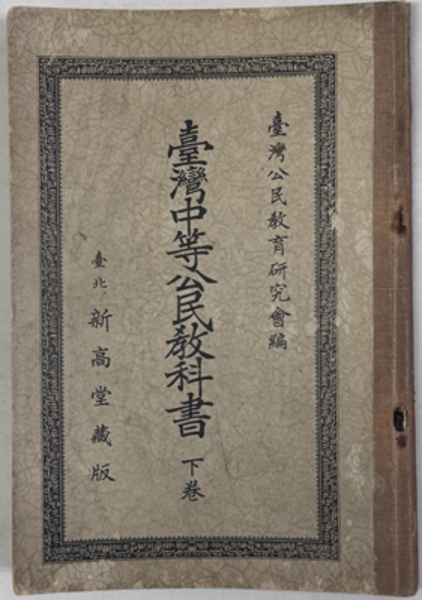 臺灣公民敎育硏究會編
臺灣中等公民敎科書 下卷
臺北 新高堂藏版